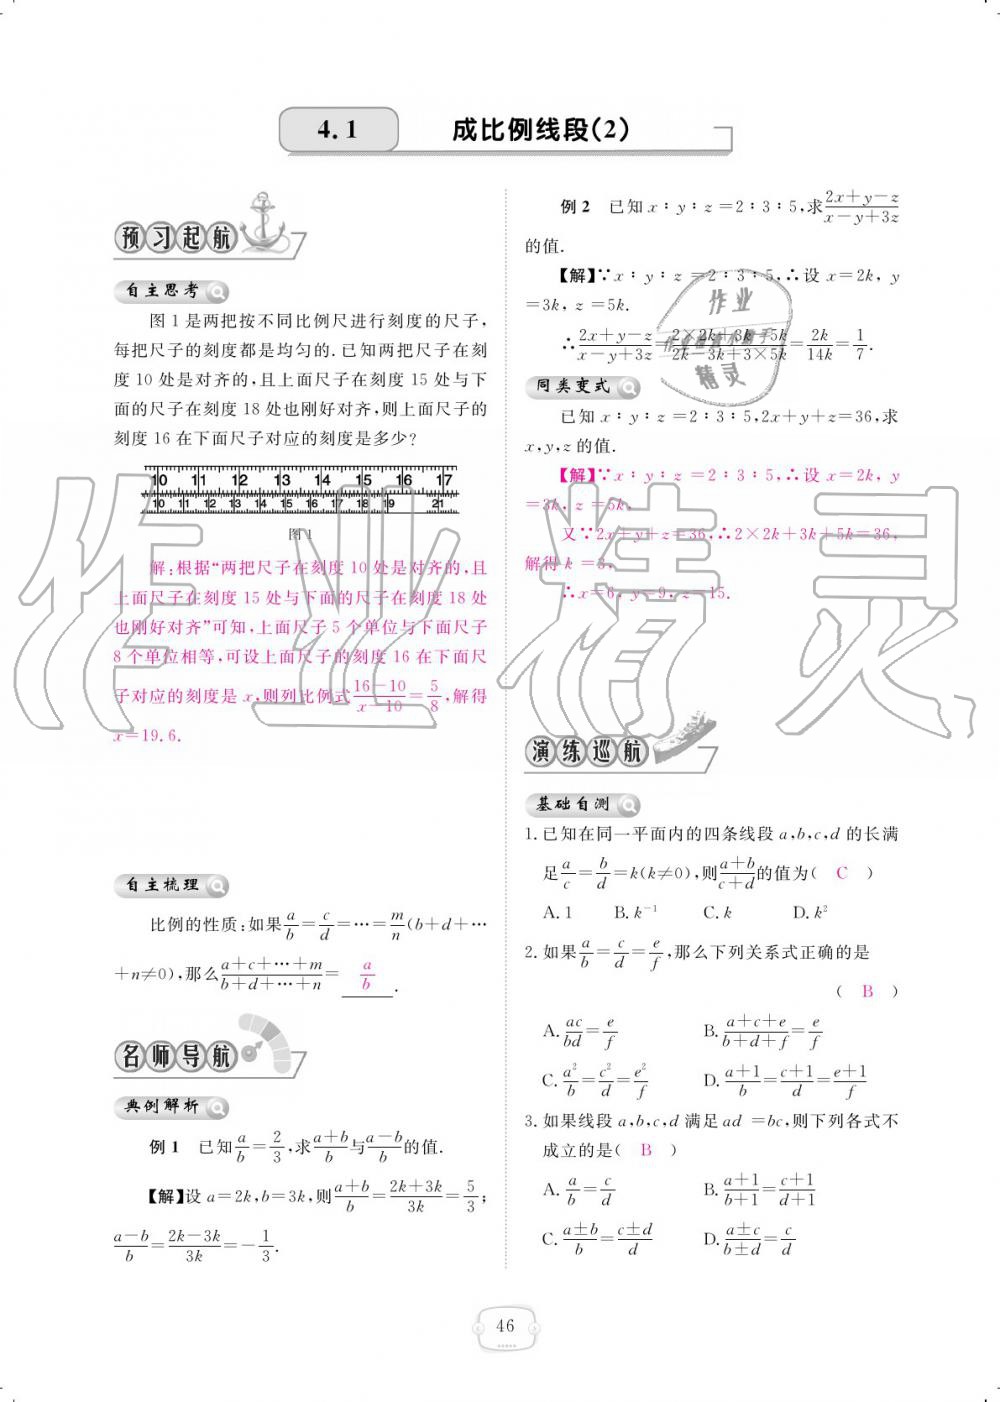 4.1 成比例线段(2)
预习起航
自主思考
图 1 是两把按不同比例尺进行刻度的尺子,
每把尺子的刻度都是均匀的.已知两把尺子在刻
度 10 处是对齐的,且上面尺子在刻度 15 处与下
面的尺子在刻度 18 处也刚好对齐,则上面尺子的
刻度 16 在下面尺子对应的刻度是多少?
10 11 12 13 14 15 16 17
10 11 12 13 14 15 16 17 18 19 21
图 1
解:根据“两把尺子在刻度 10 处是对齐的,且
上面尺子在刻度 15 处与下面的尺子在刻度 18 处
也刚好对齐”可知,上面尺子 5 个单位与下面尺子
8 个单位相等,可设上面尺子的刻度 16 在下面尺
子对应的刻度是 x,则列比例式(16-10)/(x-10)=5/8,解得
x=19.6.
自主梳理
比例的性质:如果a/b=c/d=…=m/n(b+d+…
+n≠0),那么(a+c+…+m)/(b+d+…+n)=a/b.
名师导航
典例解析
例 1 已知a/b=2/3,求(a+b)/b与(a-b)/b的值.
【解】设 a=2k,b=3k,则(a+b)/b=(2k+3k)/3k=5/3;
(a-b)/b=(2k-3k)/3k=-1/3.
例 2 已知 x∶y∶z=2∶3∶5,求(2x+y-z)/(x-y+3z)
的值.
【解】∵x∶y∶z=2∶3∶5,∴设 x=2k, y
=3k, z=5k.
∴(2x+y-z)/(x-y+3z)=(2×2k+3k-5k)/(2k-3k+3×5k)=2k/14k=1/7.
同类变式
已知 x∶y∶z=2∶3∶5,2x+y+z=36,求
x,y,z 的值.
【解】∵x∶y∶z=2∶3∶5,∴设 x=2k, y
=3k, z=5k.
又∵2x+y+z=36,∴2×2k+3k+5k=36,
解得 k=3,
∴x=6,y=9,z=15.
演练巡航
基础自测
1.已知在同一平面内的四条线段 a,b,c,d 的长满
足a/c=b/d=k(k≠0),则(a+b)/(c+d)的值为( C )
A.1 B.k⁻¹ C.k D.k²
2.如果a/b=c/d=e/f,那么下列关系式正确的是
( B )
A.ac/bd=e/f B.(a+c+e)/(b+d+f)=e/f
C.a²/b=c²/d=e²/f D.(a+1)/b=(c+1)/d=(e+1)/f
3.如果线段 a,b,c,d 满足 ad=bc,则下列各式不
成立的是( B )
A.a/b=c/d B.(a+1)/(b+1)=(c+1)/(d+1)
C.(a±b)/b=(c±d)/d D.(a±c)/(b±d)=c/d
46
作业精灵
作业
精灵